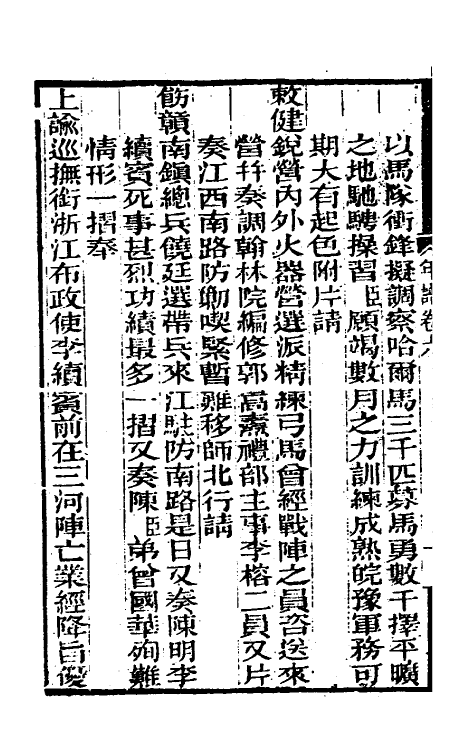 以馬隊衝鋒擬調察哈爾馬三千匹募馬勇數千擇平曠
之地馳騁操習臣願竭數月之力訓練成熟皖豫軍務可
期大有起色附片請
敕健銳營內外火器營選派精練弓馬曾經戰陣之員咨送來
營幷奏調翰林院編修郭嵩燾禮部主事李榕二員又片
奏江西南路防勦喫緊暫難移師北行請
飭贛南鎮總兵饒廷選帶兵來江駐防南路是日又奏陳明李
續賓死事甚烈功績最多一摺又奏陳臣弟曾國華殉難
情形一摺奉
上諭巡撫銜浙江布政使李續賓前在三河陣亡業經降旨優
年譜卷六